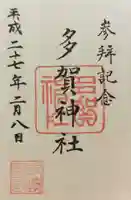 参拝記念
多賀神社
平成二十七年二月八日